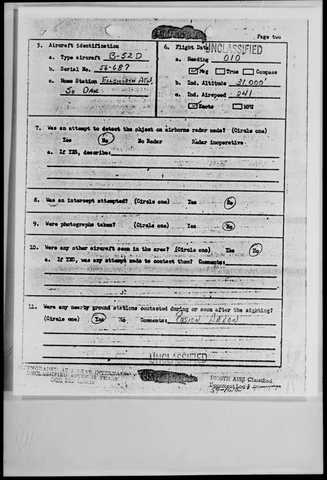 UNCLASSIFIED
Page two
5. Aircraft identification
a. Type aircraft B-52D
b. Serial No. 56-687
c. Home Station Ellsworth AFB,
So Dak
6. Flight Data
a. Heading 010
Mag True Compass
b. Ind. Altitude 31,000'
c. Ind. Airspeed 241
Knots MPH
7. Was an attempt to detect the object on airborne radar made? (Circle one)
Yes No No Radar Radar inoperative
a. If YES, describe:
8. Was an intercept attempted? (Circle one) Yes No
9. Were photographs taken? (Circle one) Yes No
10. Were any other aircraft seen in the area? (Circle one) Yes No
a. If YES, was any attempt made to contact them? Comments:
11. Were any nearby ground stations contacted during or soon after the sighting?
(Circle one) Yes No Comments:
UNCLASSIFIED
DOWNGRADED AT 3 YEAR INTERVALS
DECLASSIFIED AFTER 12 YEARS